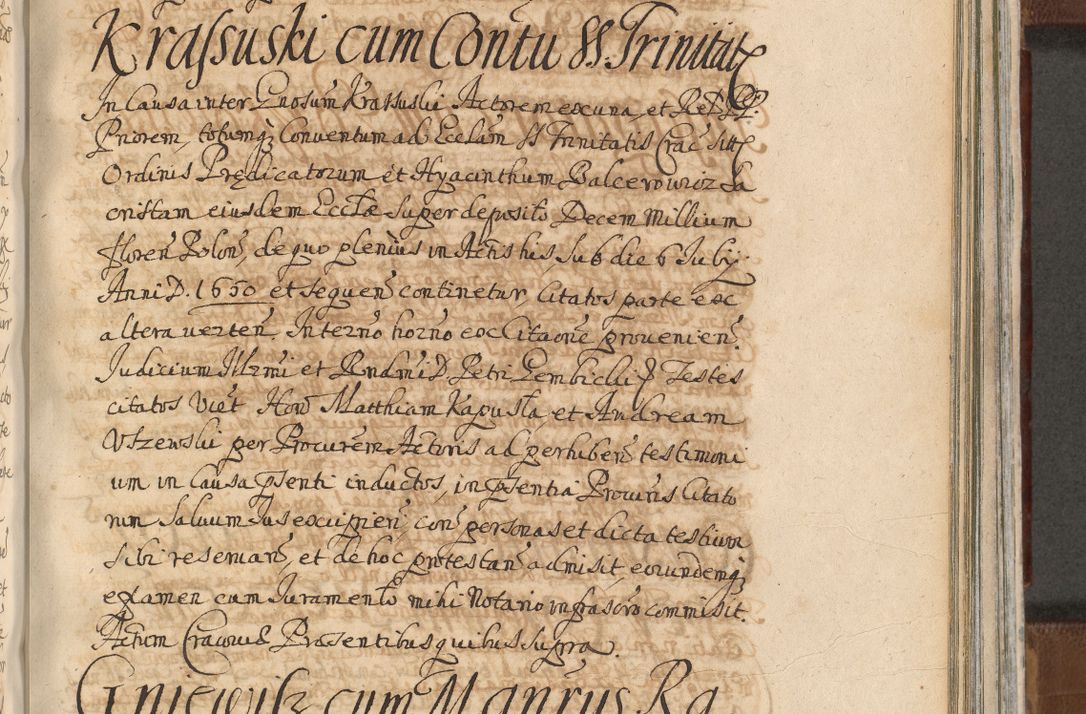 Krassuski cum Contu SS. Trinitat
In Causa inter Gnosum Krassuski Actorem ex una, et Red PP.
Priorem, totumq Conventum ad Ecclam SS Trinitatis Crac sitt
Ordinis Prędicatorum et Hyacinthum Balcerowicz Sa
cristam eiusdem Ecclæ super deposito Decem Millium
floren Polon, de quo plenius in Actis his, sub die 6 July
Anni D. 1650 et sequen continetur, Citatos parte ex
altera verten. In termo horno ex Citaone provenien.
Judicium Illmi et Rndmi D. Petri Gembicki Testes
citatos Vict Hon Matthiam Kapusta, et Andream
Vszewski per Procurem Actoris ad perhiben testimoni
um in Causa psenti inductos, in psentia Procuris Citato
rum saluum Jus excipien con personas et dicta testium
sibi reseruan, et de hoc protestan admisit eorundemq
examen cum Juramento mihi Notario infrascro commisit.
Actum Cracoviæ Præsentibus quibus supra.
Gniewisz cum Manrys Ra